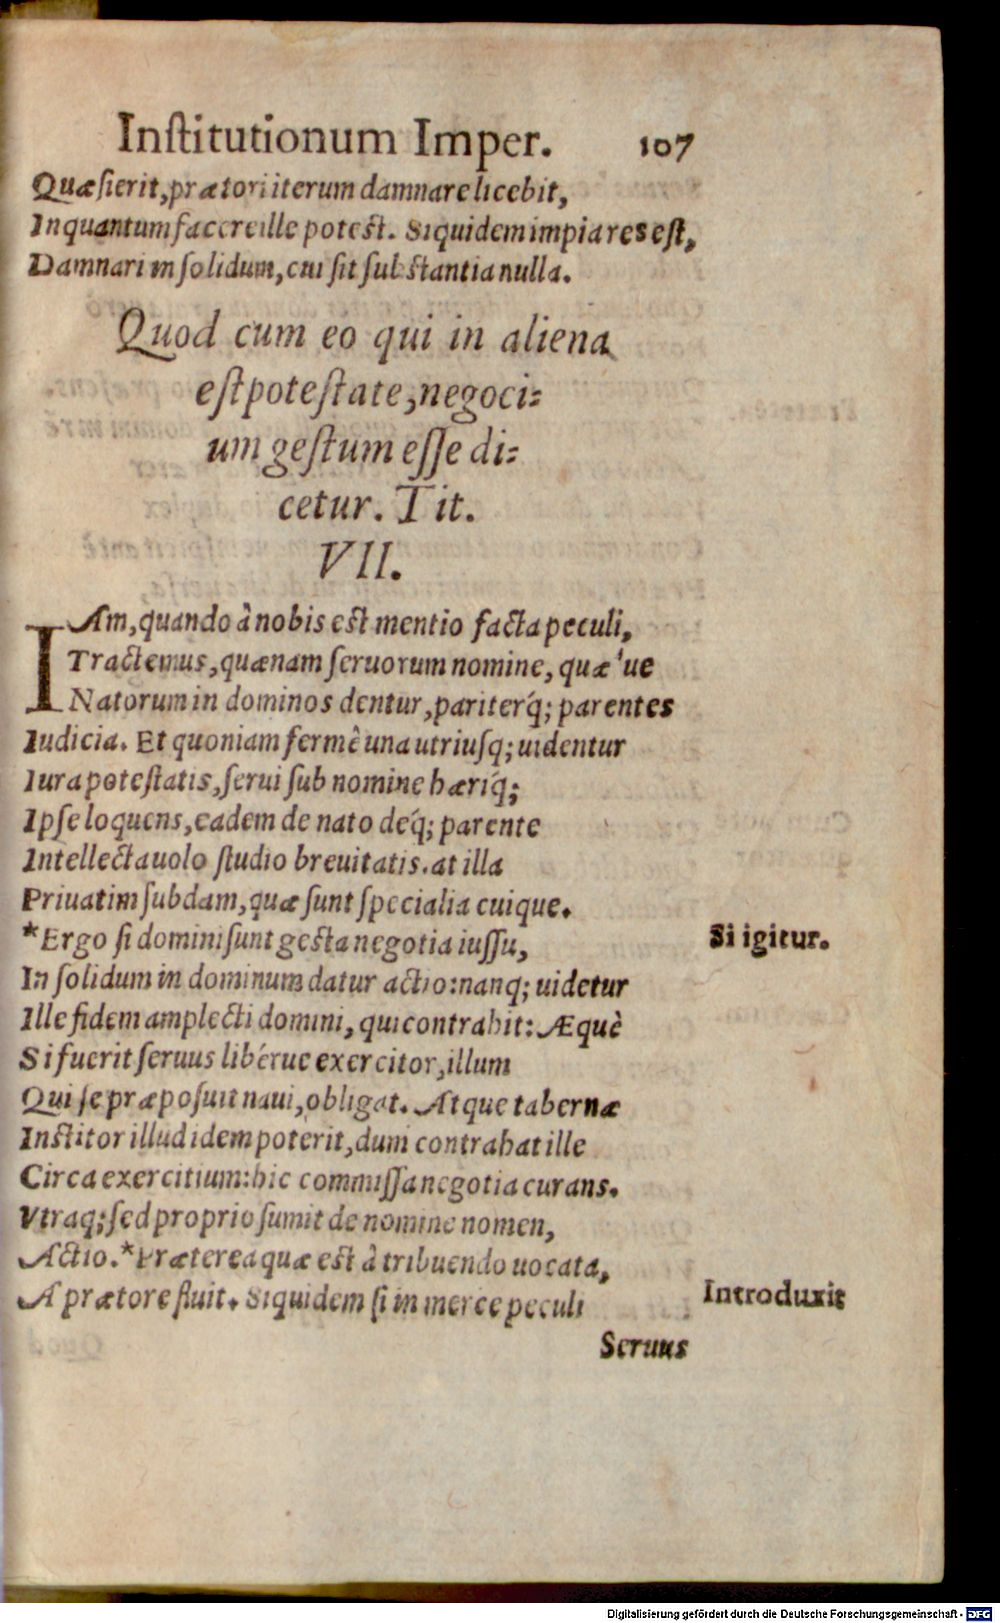 Institutionum Imper. 107
Quæsierit, prætori iterum damnare licebit,
In quantum facere ille potest. Siquidem impia res est,
Damnari in solidum, cui sit substantia nulla.
Quod cum eo qui in aliena
est potestate, negoci=
um gestum esse di=
cetur. Tit.
VII.
IAm, quando à nobis est mentio facta peculi,
Tractemus, quænam seruorum nomine, quæ'ue
Natorum in dominos dentur, pariterq́; parentes
Iudicia. Et quoniam fermè una utriusq; uidentur
Iura potestatis, serui sub nomine hæriq́;
Ipse loquens, eadem de nato deq́; parente
Intellecta uolo studio breuitatis. at illa
Priuatim subdam, quæ sunt specialia cuique.
*Ergo si domini sunt gesta negotia iussu, Si igitur.
In solidum in dominum datur actio: nanq; uidetur
Ille fidem amplecti domini, qui contrahit: Æquè
Si fuerit seruus libérue exercitor, illum
Qui se præposuit naui, obligat. Atque tabernæ
Institor illud idem poterit, dum contrahat ille
Circa exercitium: hic commissa negotia curans.
Vtraq; sed proprio sumit de nomine nomen,
Actio. *Præterea quæ est à tribuendo uocata,
A prætore fluit. Siquidem si in merce peculi Introduxit
Seruus
Digitalisierung gefördert durch die Deutsche Forschungsgemeinschaft - DFG